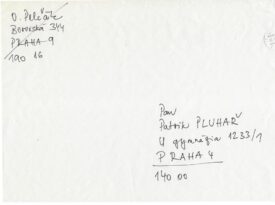 O. Pelčák
Borovská 344
PRAHA 9
190 16
Pan
Patrik PLUHAŘ
U gymnázia 1233/1
PRAHA 4
140 00